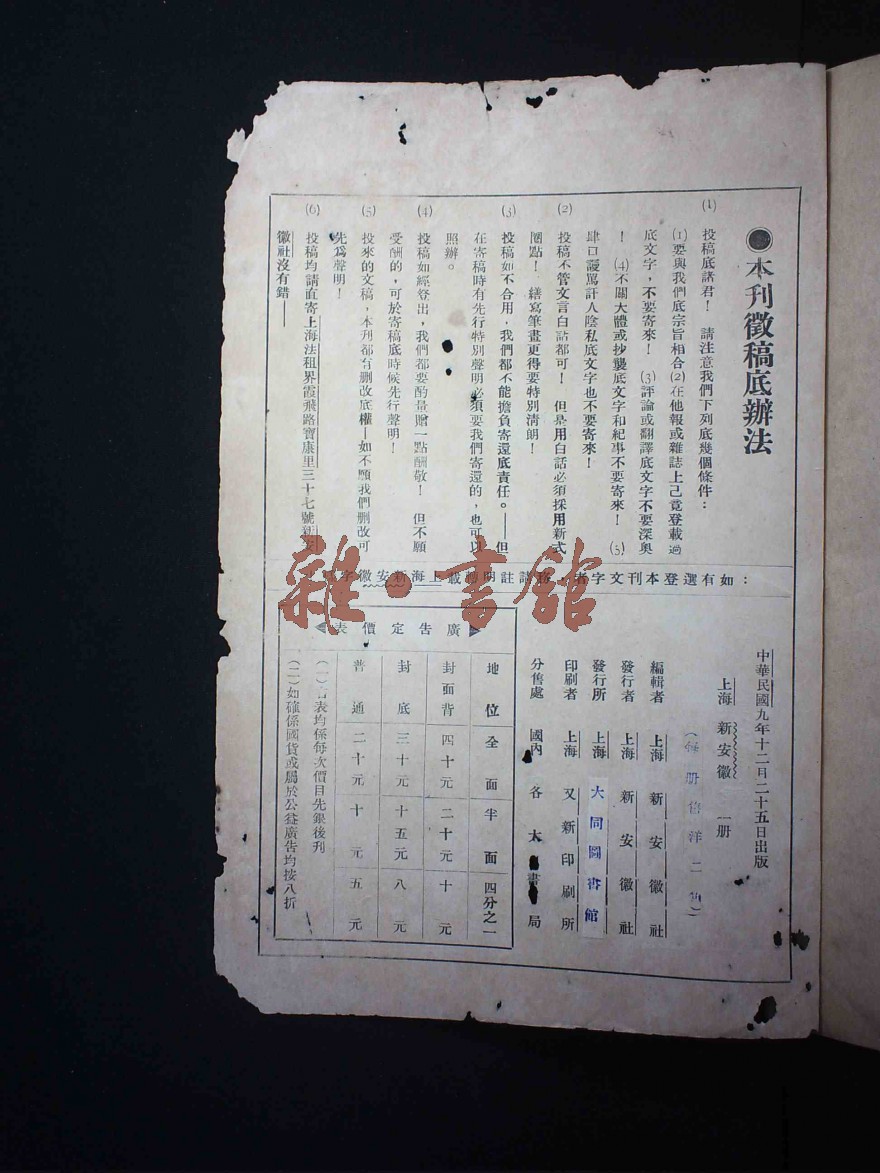 ●本刊徵稿底辦法
(1) 投稿底諸君！ 請注意我們下列底幾個條件：
(1)要與我們底宗旨相合(2)在他報或雜誌上己竟登載過
底文字，不要寄來！ (3)評論或翻譯底文字不要深奧
！ (4)不關大體或抄襲底文字和紀事不要寄來！ (5)
肆口謾罵訐人陰私底文字也不要寄來！
(2) 投稿不管文言白話都可！ 但是用白話必須採用新式
圈點！ 繕寫筆畫更得要特別清朗！
(3) 投稿如不合用，我們都不能擔負寄還底責任。——但
在寄稿時有先行特別聲明必須要我們寄還的，也可以
照辦。
(4) 投稿如經登出，我們都要酌量贈一點酬敬！ 但不願
受酬的，可於寄稿底時候先行聲明！
(5) 投來的文稿，本刊都有删改底權—如不願我們删改可
先爲聲明！
(6) 投稿均請直寄上海法租界霞飛路寶康里三十七號新安
徽社沒有錯——
如有選登本刊文字者 請註明 載上海新安徽字
中華民國九年十二月二十五日出版
上海 新安徽 一册
(每册售洋二角)
編輯者 上海 新安徽社
發行者 上海 新安徽社
發行所 上海 大同圖書館
印刷者 上海 又新印刷所
分售處 國內 各大書局
廣告定價表
地位 全面 半面 四分之一
封面背 四十元 二十元 十元
封底 三十元 十五元 八元
普通 二十元 十元 五元
(一)右表均係每次價目先銀後刊
(二)如確係國貨或屬於公益廣告均按八折
雜·書館